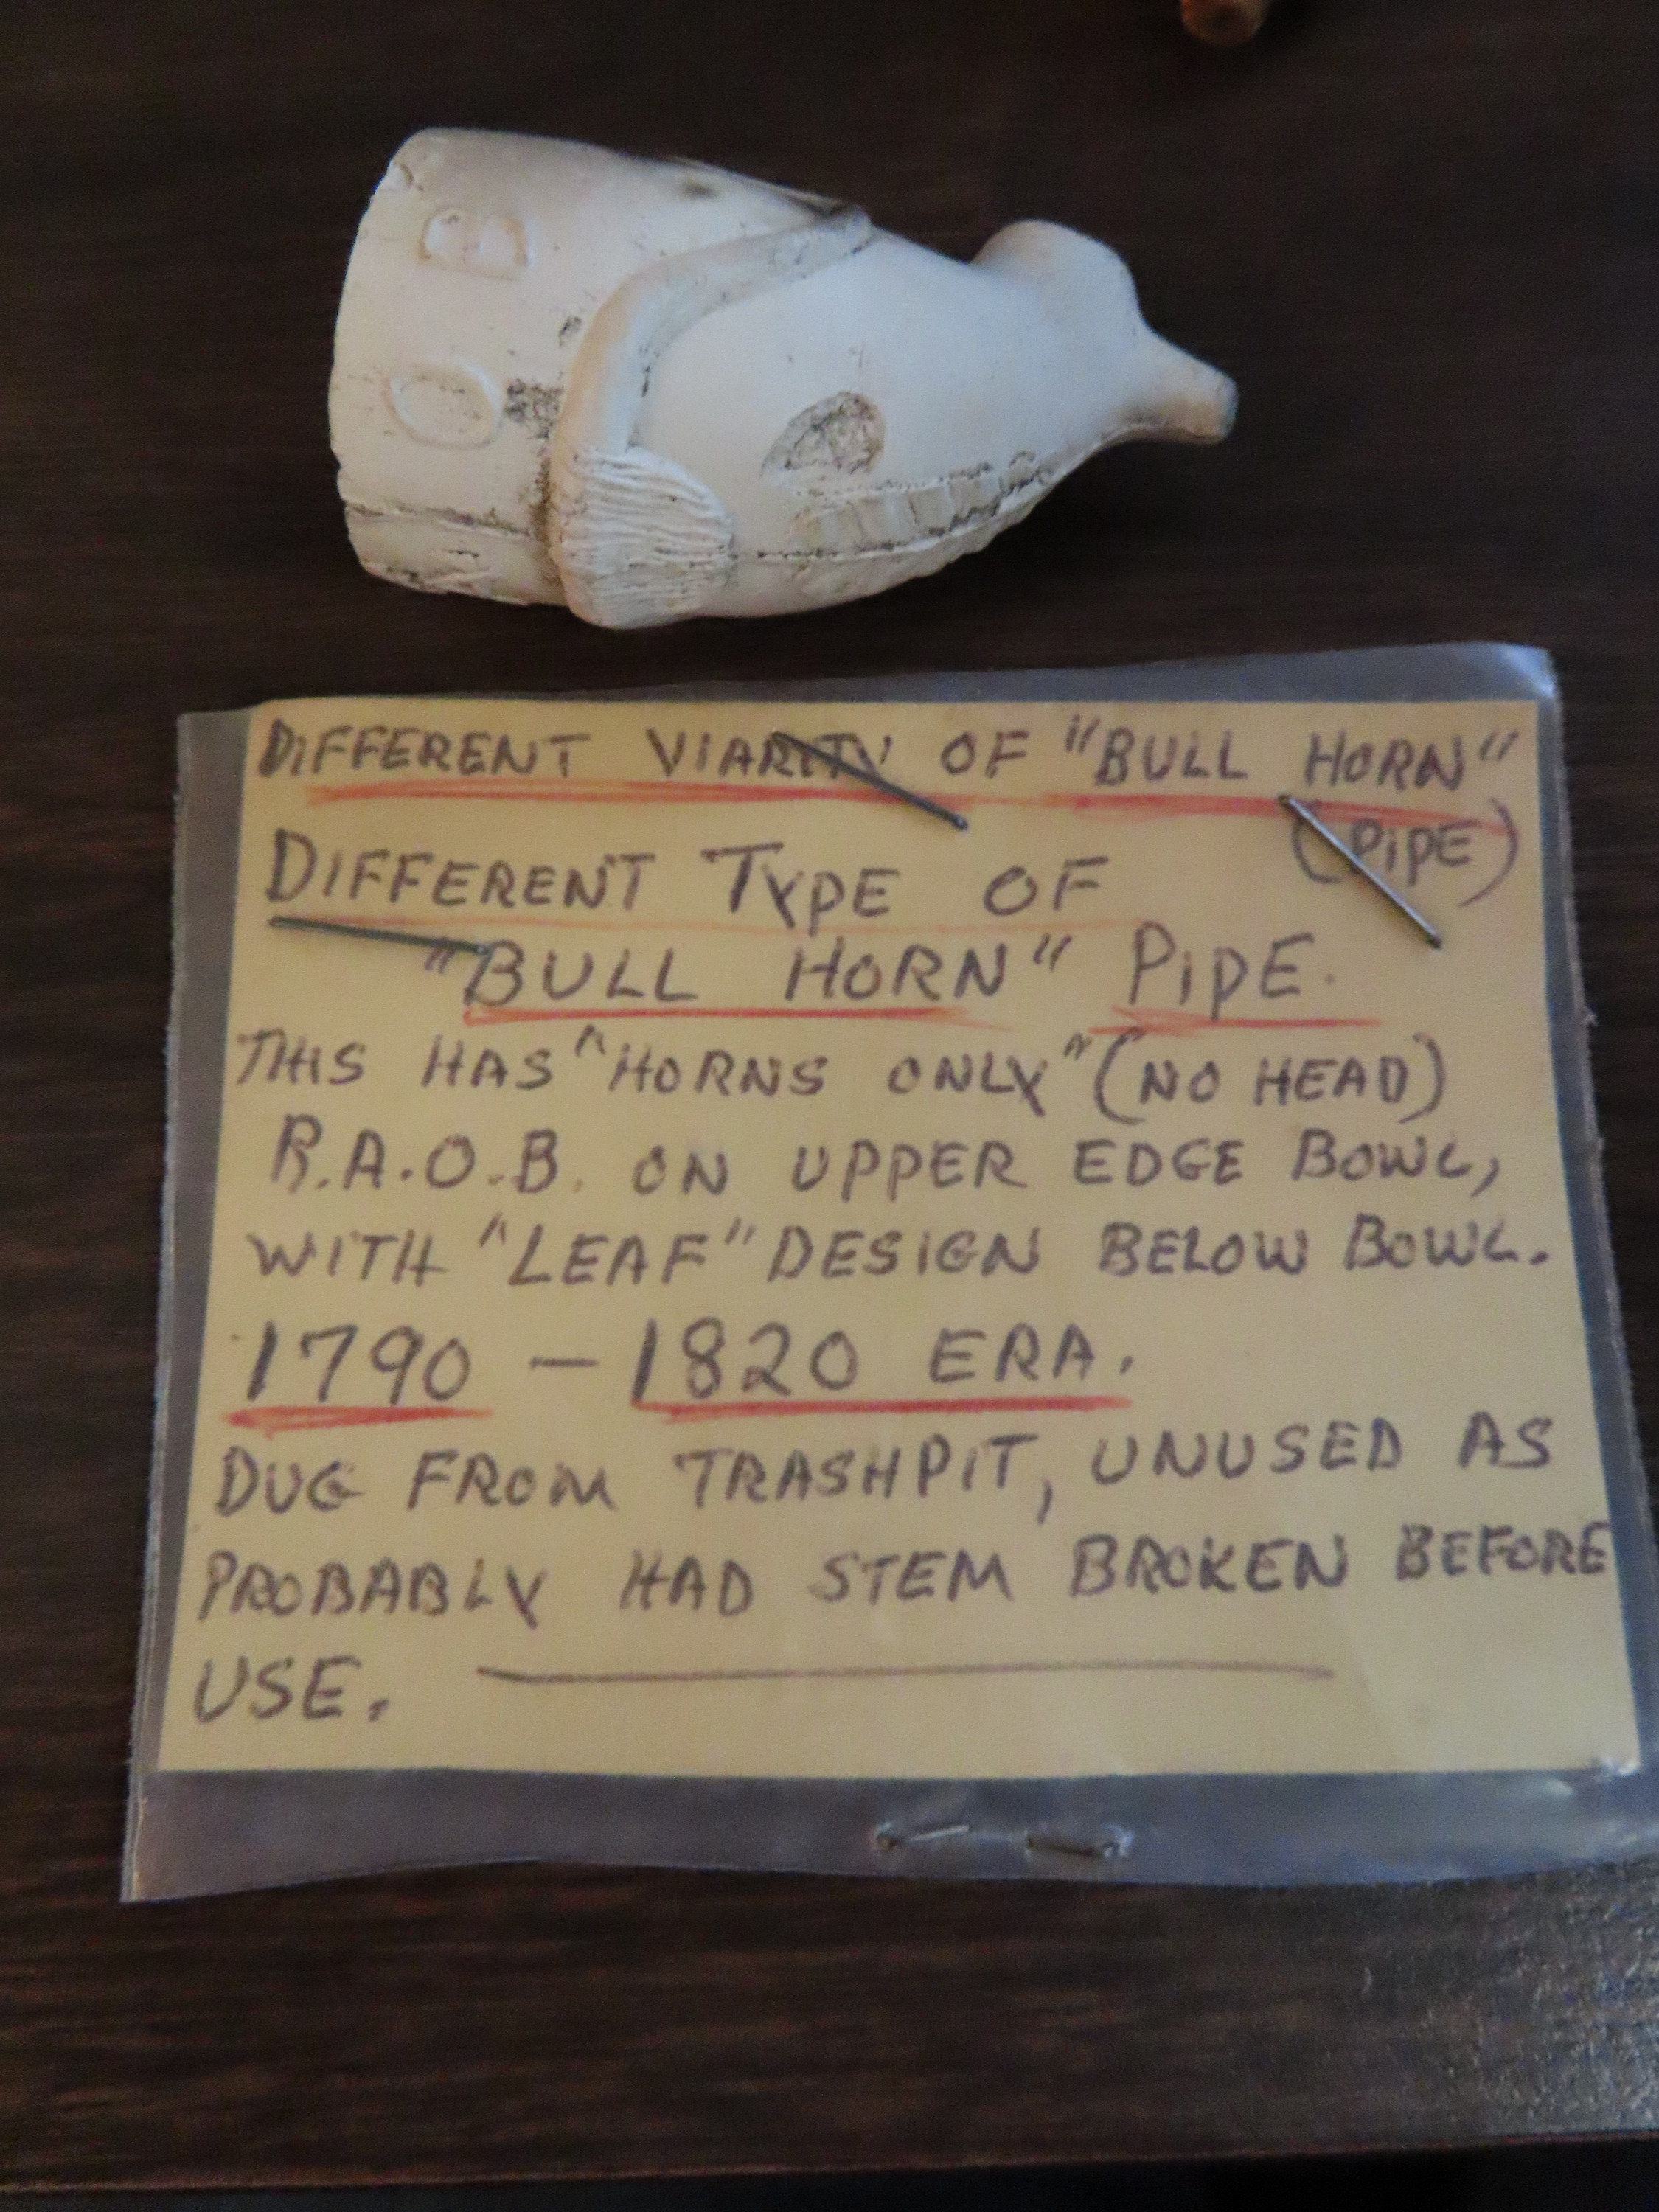 B
O
DIFFERENT VIARITY OF "BULL HORN"
(PIPE)
DIFFERENT TYPE OF
"BULL HORN" PIPE.
THIS HAS "HORNS ONLY" (NO HEAD)
R.A.O.B. ON UPPER EDGE BOWL,
WITH "LEAF" DESIGN BELOW BOWL.
1790 – 1820 ERA.
DUG FROM TRASHPIT, UNUSED AS
PROBABLY HAD STEM BROKEN BEFORE
USE.